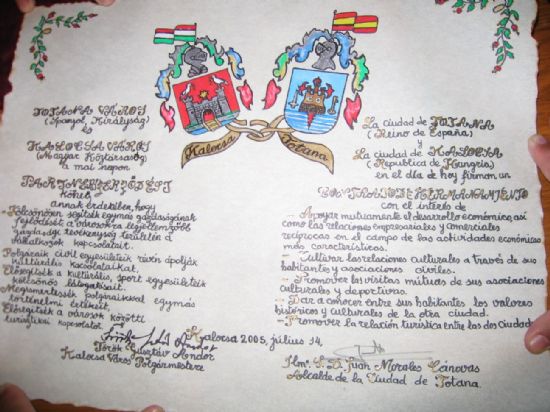 Kalocsa Totana
TOTANA VÁROS
(Spanyol Királyság)
és
KALOCSA VÁROS
(Magyar Köztársaság)
a mai napon
PARTNERSZERZŐDÉST
kötnek
annak érdekében, hogy
Kölcsönösen segítsék egymás gazdaságának
fejlődését a városokra legjellemzőbb
gazdasági tevékenység területén a
vállalkozók kapcsolatait.
Polgáraik civil egyesületeik révén ápolják
kulturális kapcsolataikat.
Elősegítsék a kulturális, sport egyesületeik
kölcsönös látogatásait.
Megismertessék polgáraikkal egymás
történelmi értékeit.
Elősegítsék a városok közötti
turisztikai kapcsolatot.
Török Gusztáv Andor
Kalocsa Város Polgármestere
Kalocsa 2005, július 14.
La ciudad de TOTANA
(Reino de España)
y
La ciudad de KALOCSA
(República de Hungría)
en el día de hoy firman un
CONTRATO DE HERMANAMIENTO
con el interés de
- Apoyar mutuamente el desarrollo económico, así
como las relaciones empresariales y comerciales
recíprocas en el campo de las actividades económicas
más características.
- Cultivar las relaciones culturales a través de sus
habitantes y asociaciones civiles.
- Promover las visitas mutuas de sus asociaciones
culturales y deportivas.
- Dar a conocer entre sus habitantes los valores
históricos y culturales de la otra ciudad.
- Promover la relación turística entre las dos ciudades
Ilmo. S. D. Juan Morales Cánovas
Alcalde de la Ciudad de Totana.